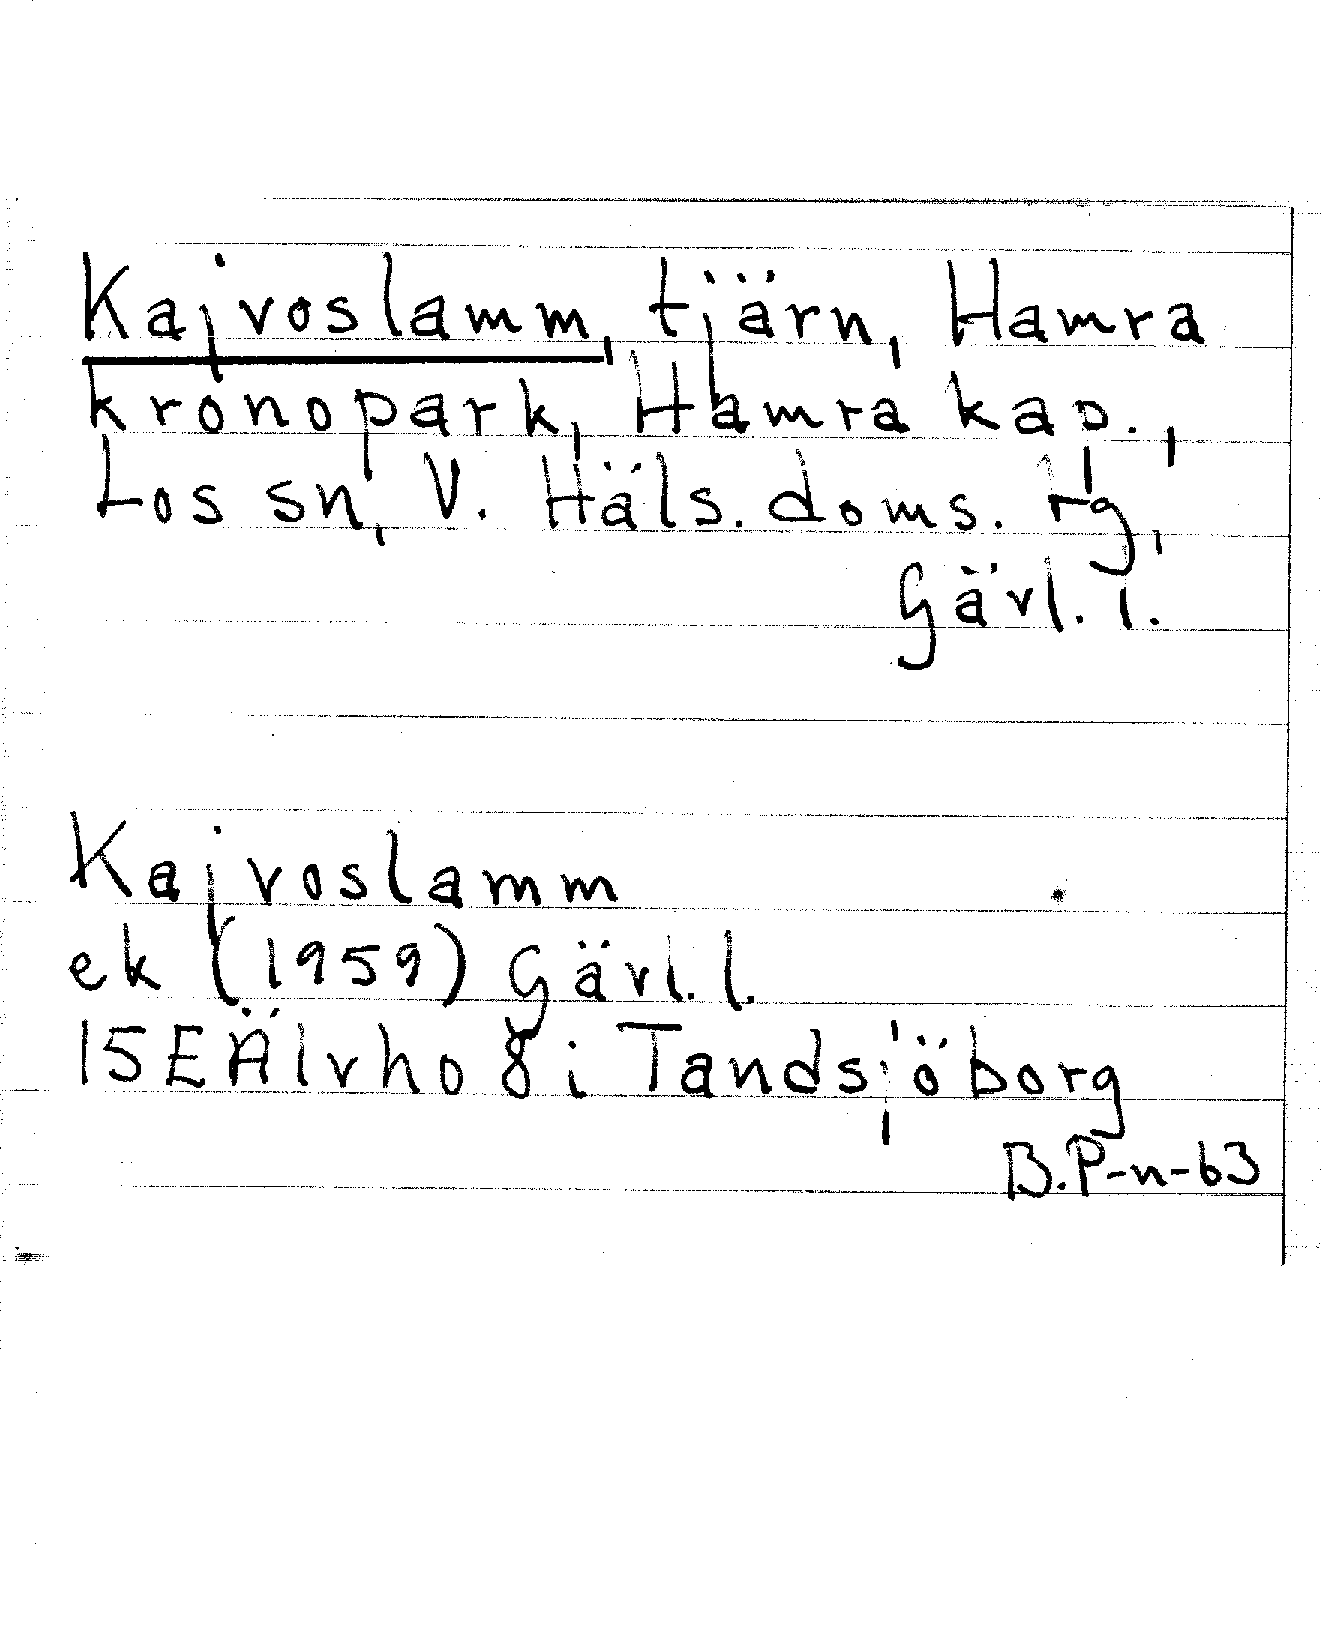 Kajvoslamm, tjärn, Hamra
kronopark, Hamra kap.,
Los sn, V. Häls. doms. rg,
Gävl. l.
Kajvoslamm
ek (1959) Gävl. l.
15EÄlvho 8i Tandsjöborg
B.P-n-63